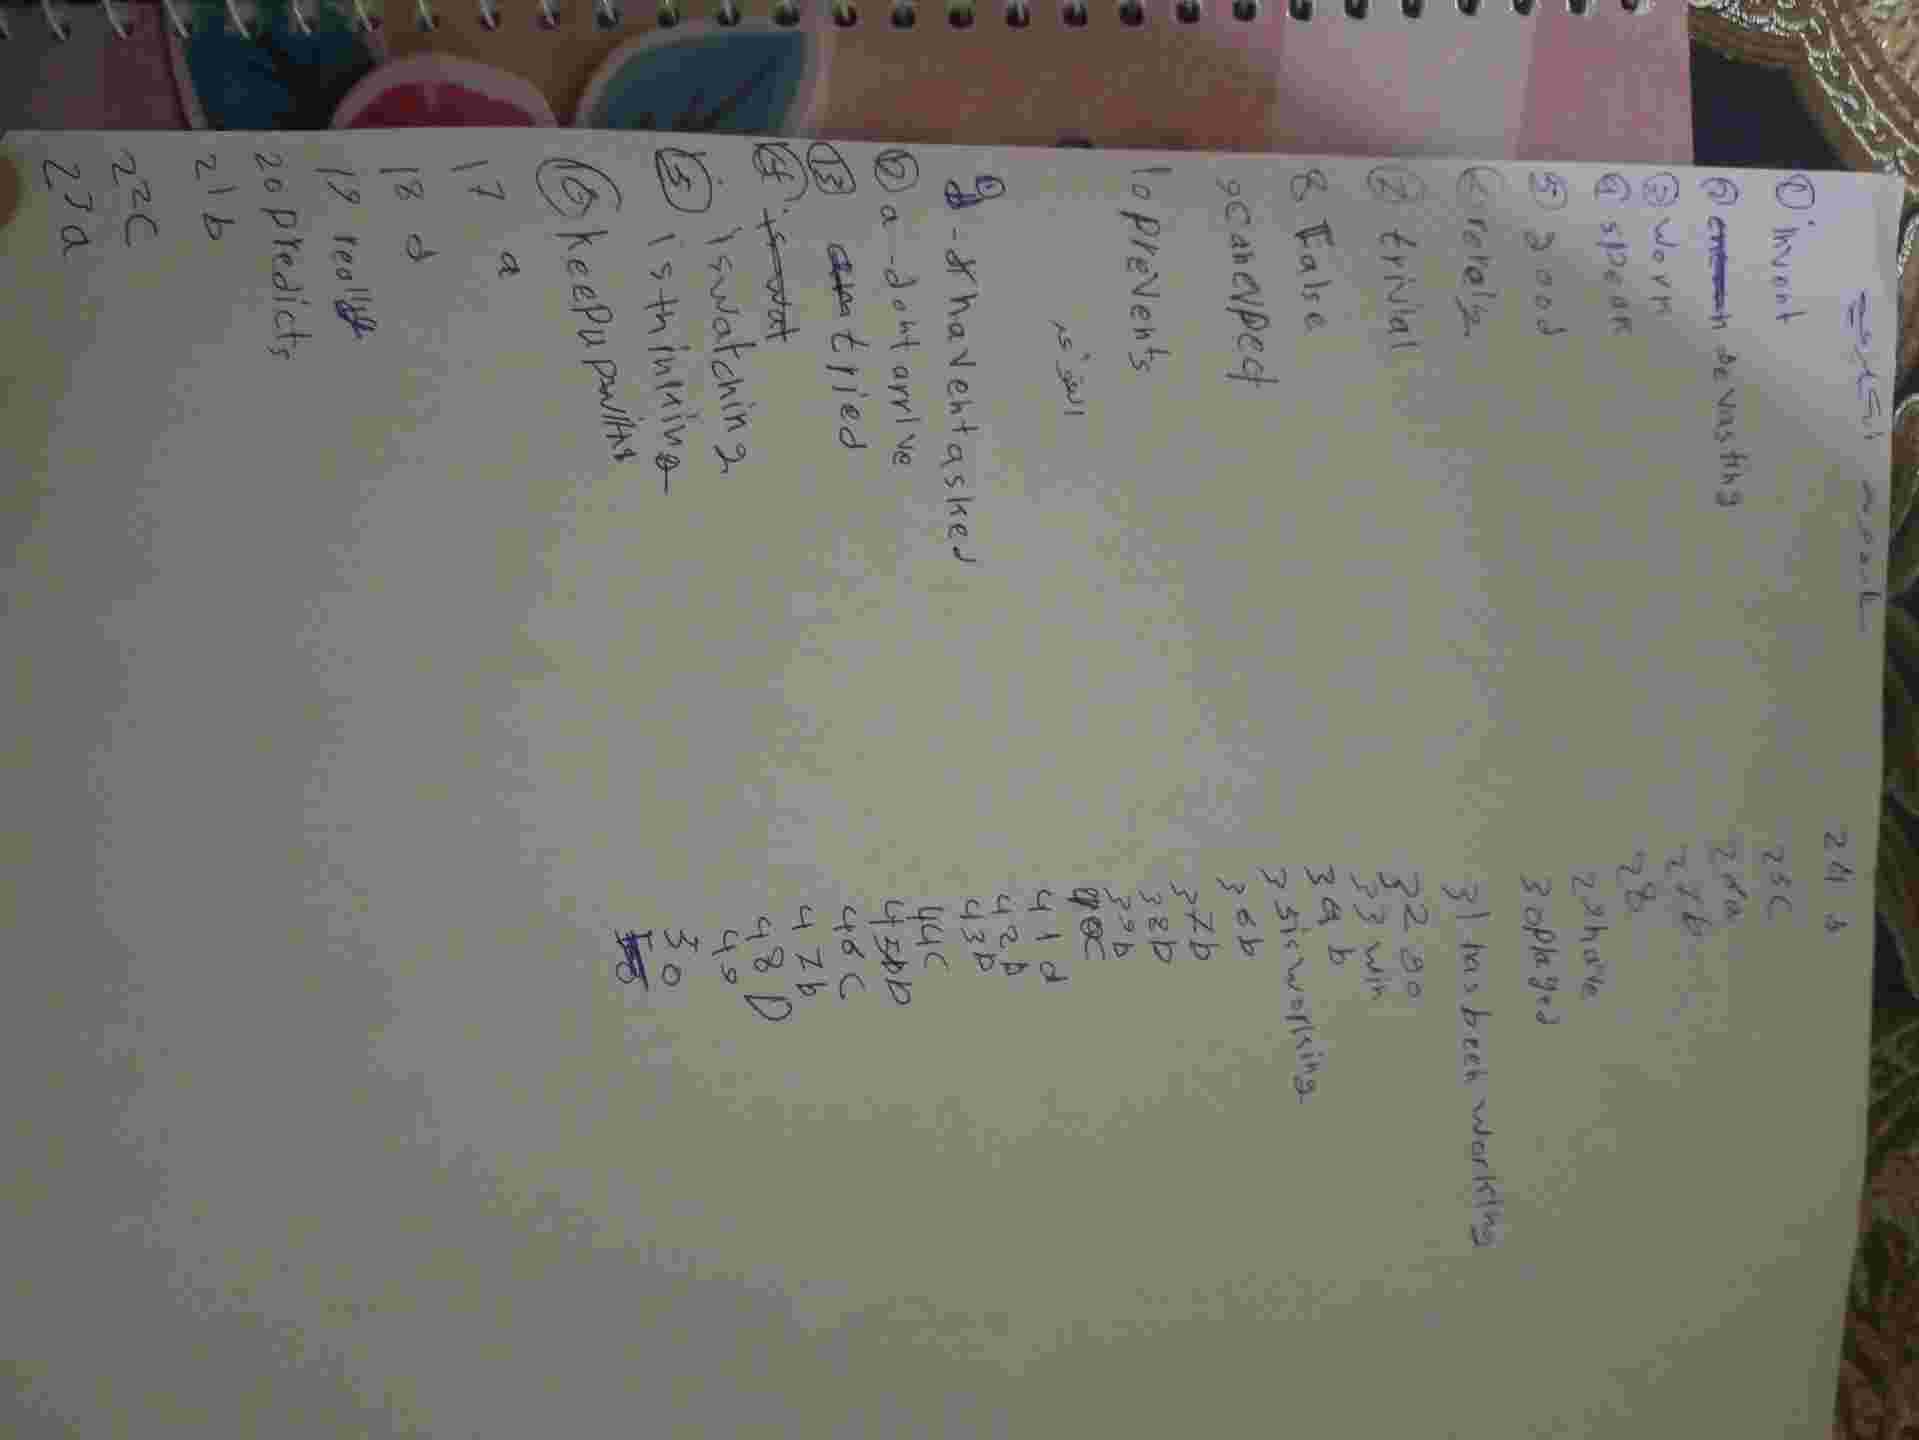 ① invent
② devasting
③ work
④ speak
⑤ good
trivial
8 False
9 can expect
10 prevents
haventasked
a - dont arrive
⑬ tried
⑭ is wat
is watching
⑮ is thinking
⑯ keepupwith
17 a
18 d
19 really
20 predicts
21 b
22 C
23 a
24
25 C
27 b
28
29 have
30 played
31 has been working
32 go
33 win
35 is working
36 b
37 b
38 b
39 b
40 C
41 d
42 b
43 b
44 C
45 b
46 C
47 b
48 D
49
30